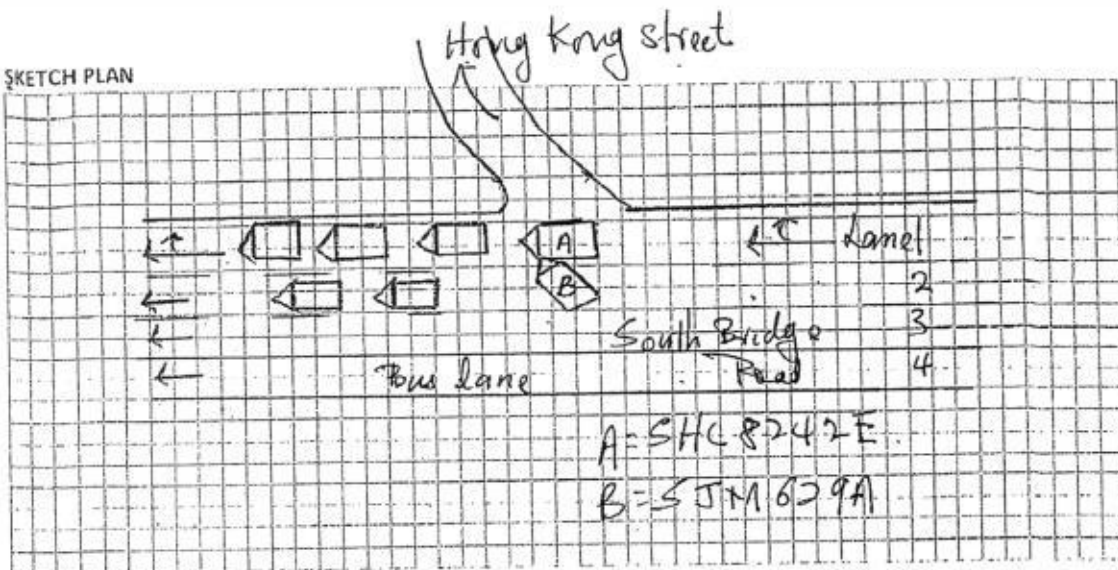 Hong Kong street
SKETCH PLAN
A
Lane 1
B
2
South Bridge
Road
3
Bus lane
4
A = SHC8242E
B = SJM629A